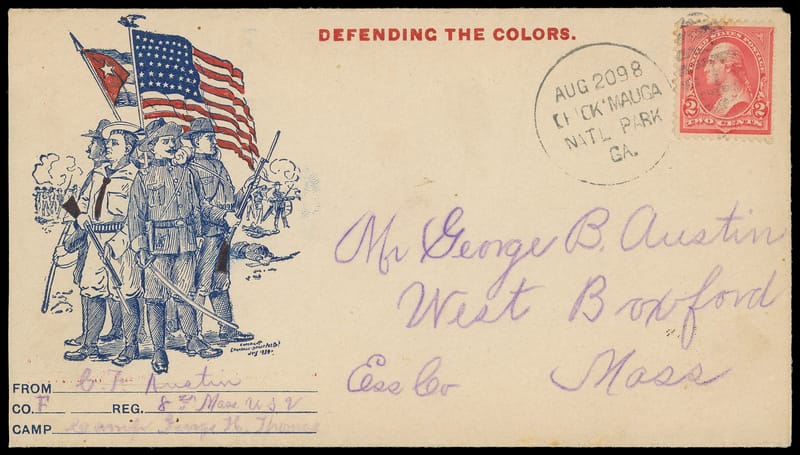 DEFENDING THE COLORS.
AUG 20 98
CHICK'MAUGA
NAT'L PARK
GA.
UNITED STATES POSTAGE
2 2
TWO CENTS
Mr George B. Austin
West Boxford
Ess Co Mass
FROM C. F. Austin
CO. F REG. 8th Mass U S V
CAMP Camp George H. Thomas